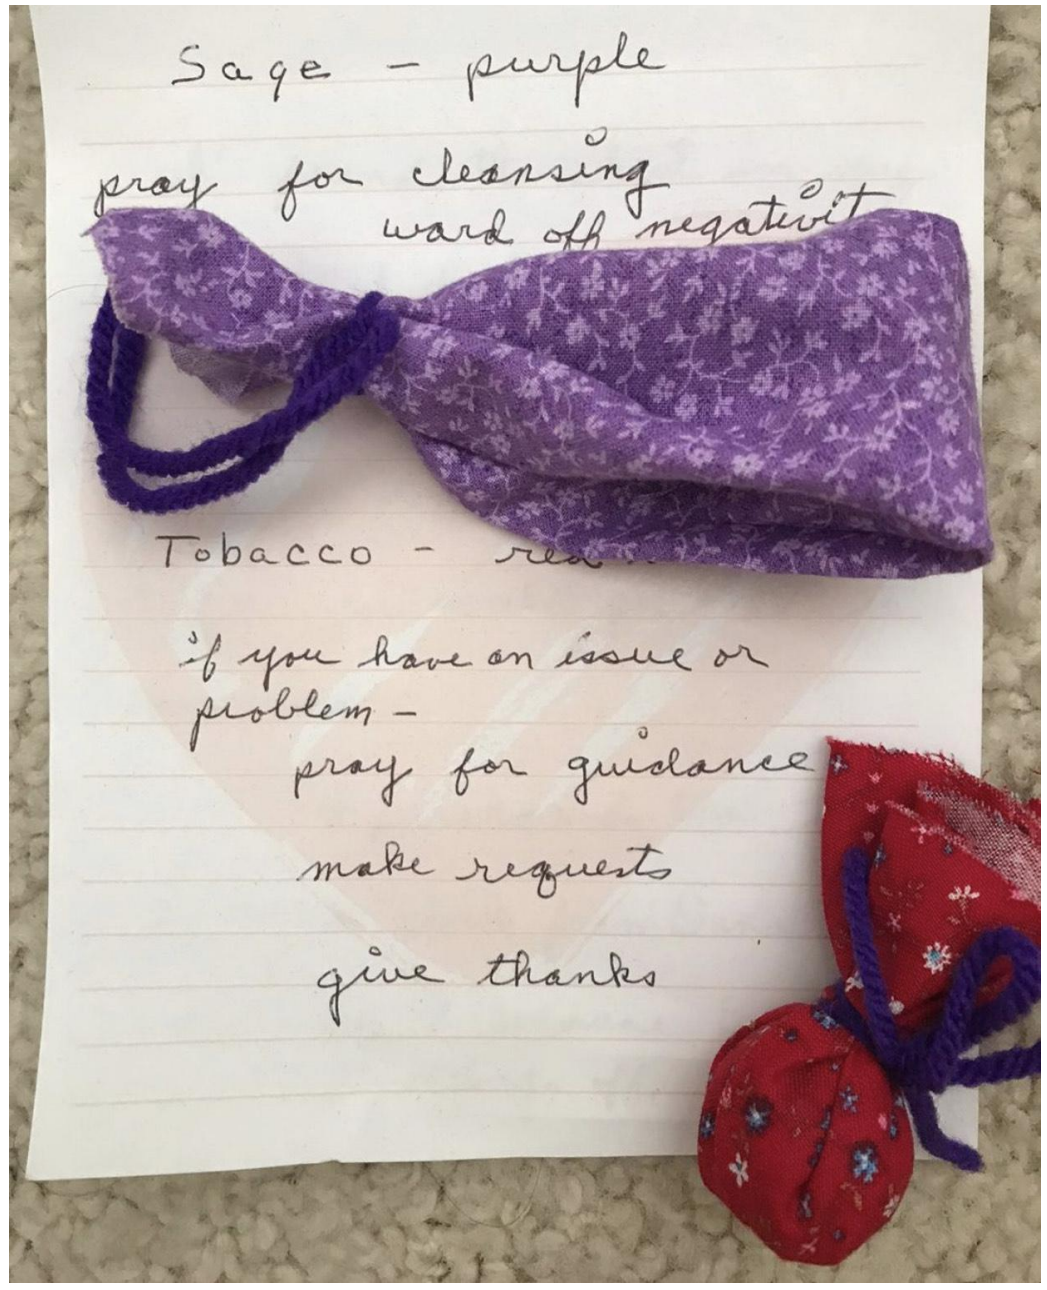 Sage - purple
pray for cleansing
ward off negativit
Tobacco - red
if you have an issue or
problem -
pray for guidance
make requests
give thanks